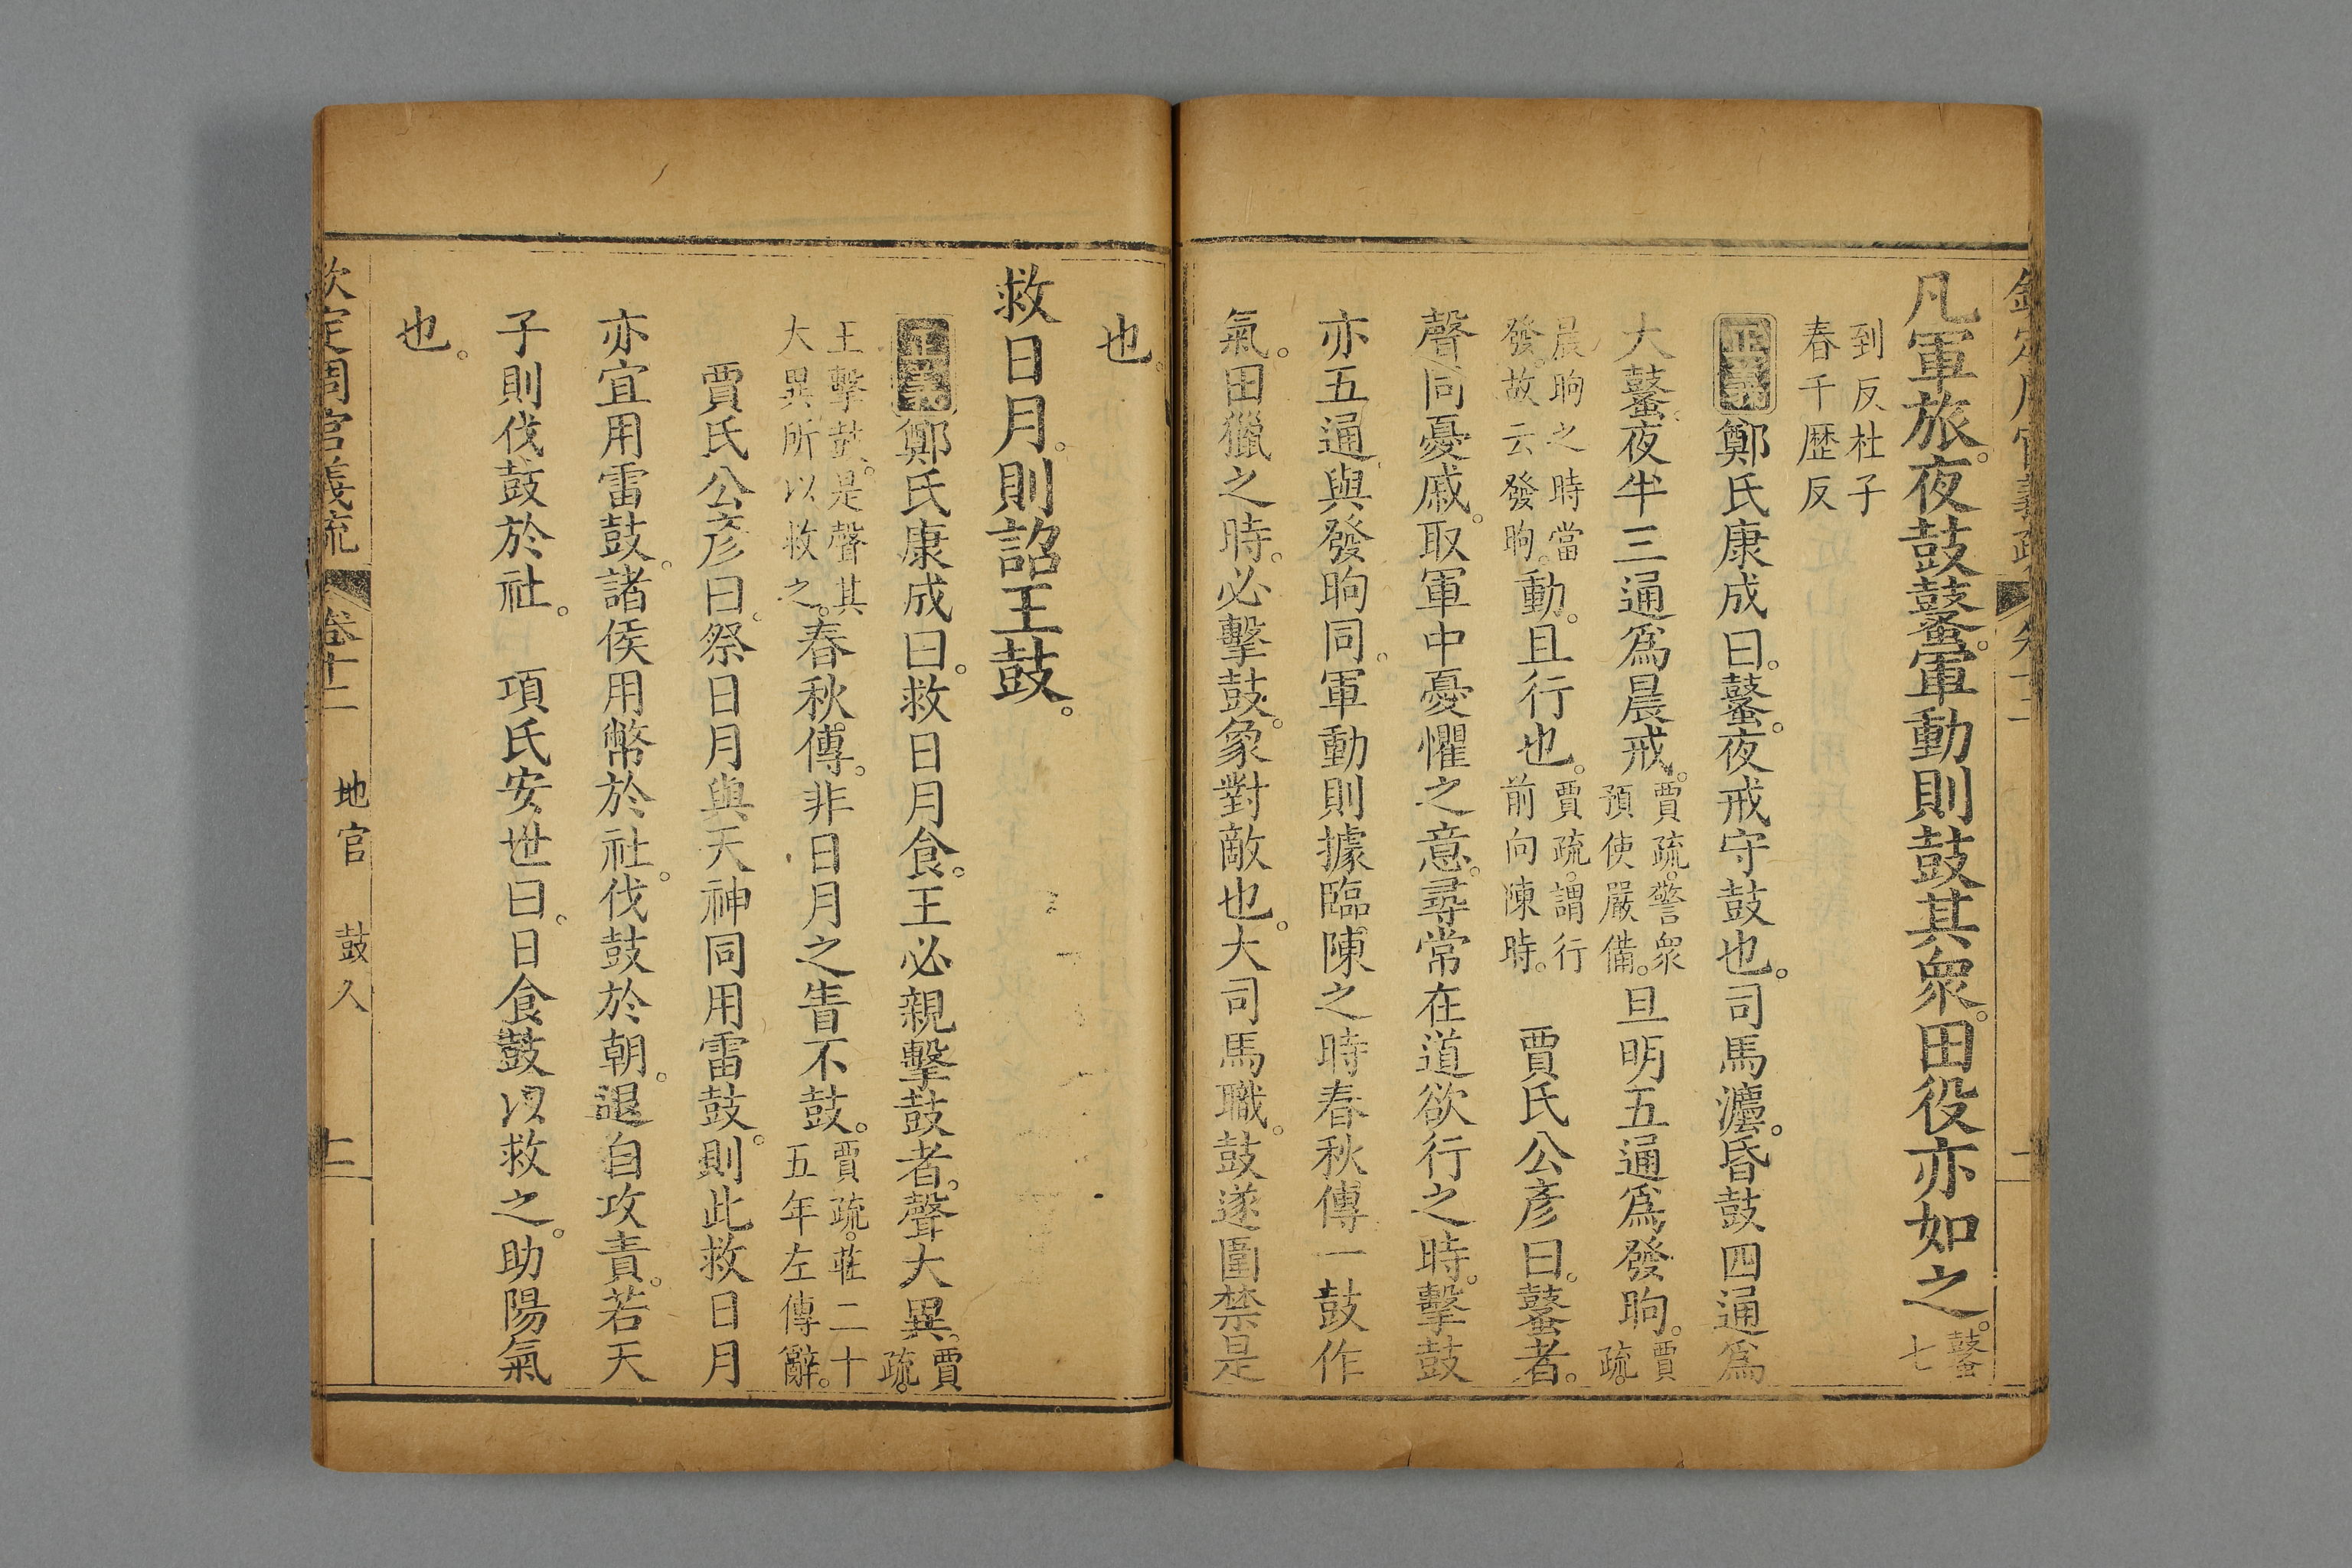 凡軍旅。夜鼓鼜。軍動則鼓其衆。田役亦如之。鼜七
到反杜子春千歷反
正義鄭氏康成曰。鼜。夜戒守鼓也。司馬灋。昏鼓四通爲
大鼜。夜半三通爲晨戒。賈疏。警衆預使嚴備。旦明五通爲發昫。賈疏。
晨昫之時當發。故云發昫。動。且行也。賈疏。謂行前向陳時。 賈氏公彥曰。鼜者。
聲同憂戚。取軍中憂懼之意。尋常在道欲行之時。擊鼓
亦五通。與發昫同。軍動則據臨陳之時。春秋傳一鼓作
氣。田獵之時。必擊鼓。象對敵也。大司馬職。鼓遂圍禁是
也。
救日月。則詔王鼓。
正義鄭氏康成曰。救日月食。王必親擊鼓者。聲大異。賈疏。
王擊鼓。是聲其大異所以救之。春秋傳。非日月之眚不鼓。賈疏。莊二十五年左傳辭。
賈氏公彥曰。祭日月與天神同用雷鼓。則此救日月
亦宜用雷鼓。諸侯用幣於社。伐鼓於朝。退自攻責。若天
子則伐鼓於社。 項氏安世曰。日食鼓以救之。助陽氣
也。
欽定周官義疏 卷十二 地官 鼓人 十二